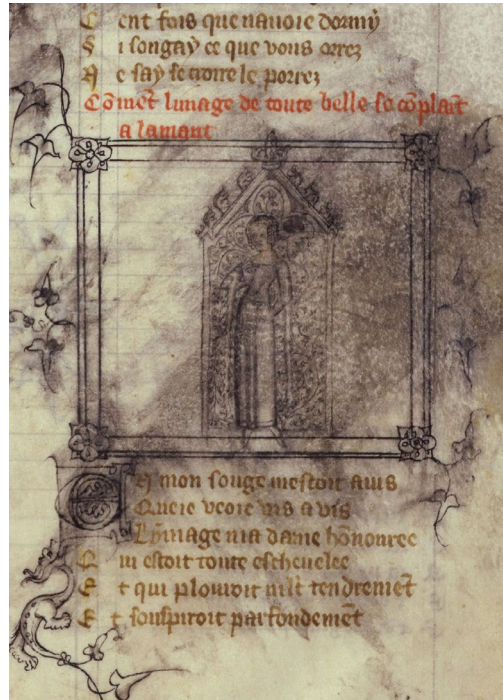 C ent fois que nauoie dormy
S i songay ce que vous orrez
A e say se croire le porrez
Cõmẽt lymage de toute belle se cõplaĩt
a lamant
E A mon songe mestoit auis
Que ie veoie vis a vis
Lymage ma dame hõnouree
Q ui estoit toute escheuelee
E t qui plouroit mlt tendremẽt
E t souspiroit parfondemẽt